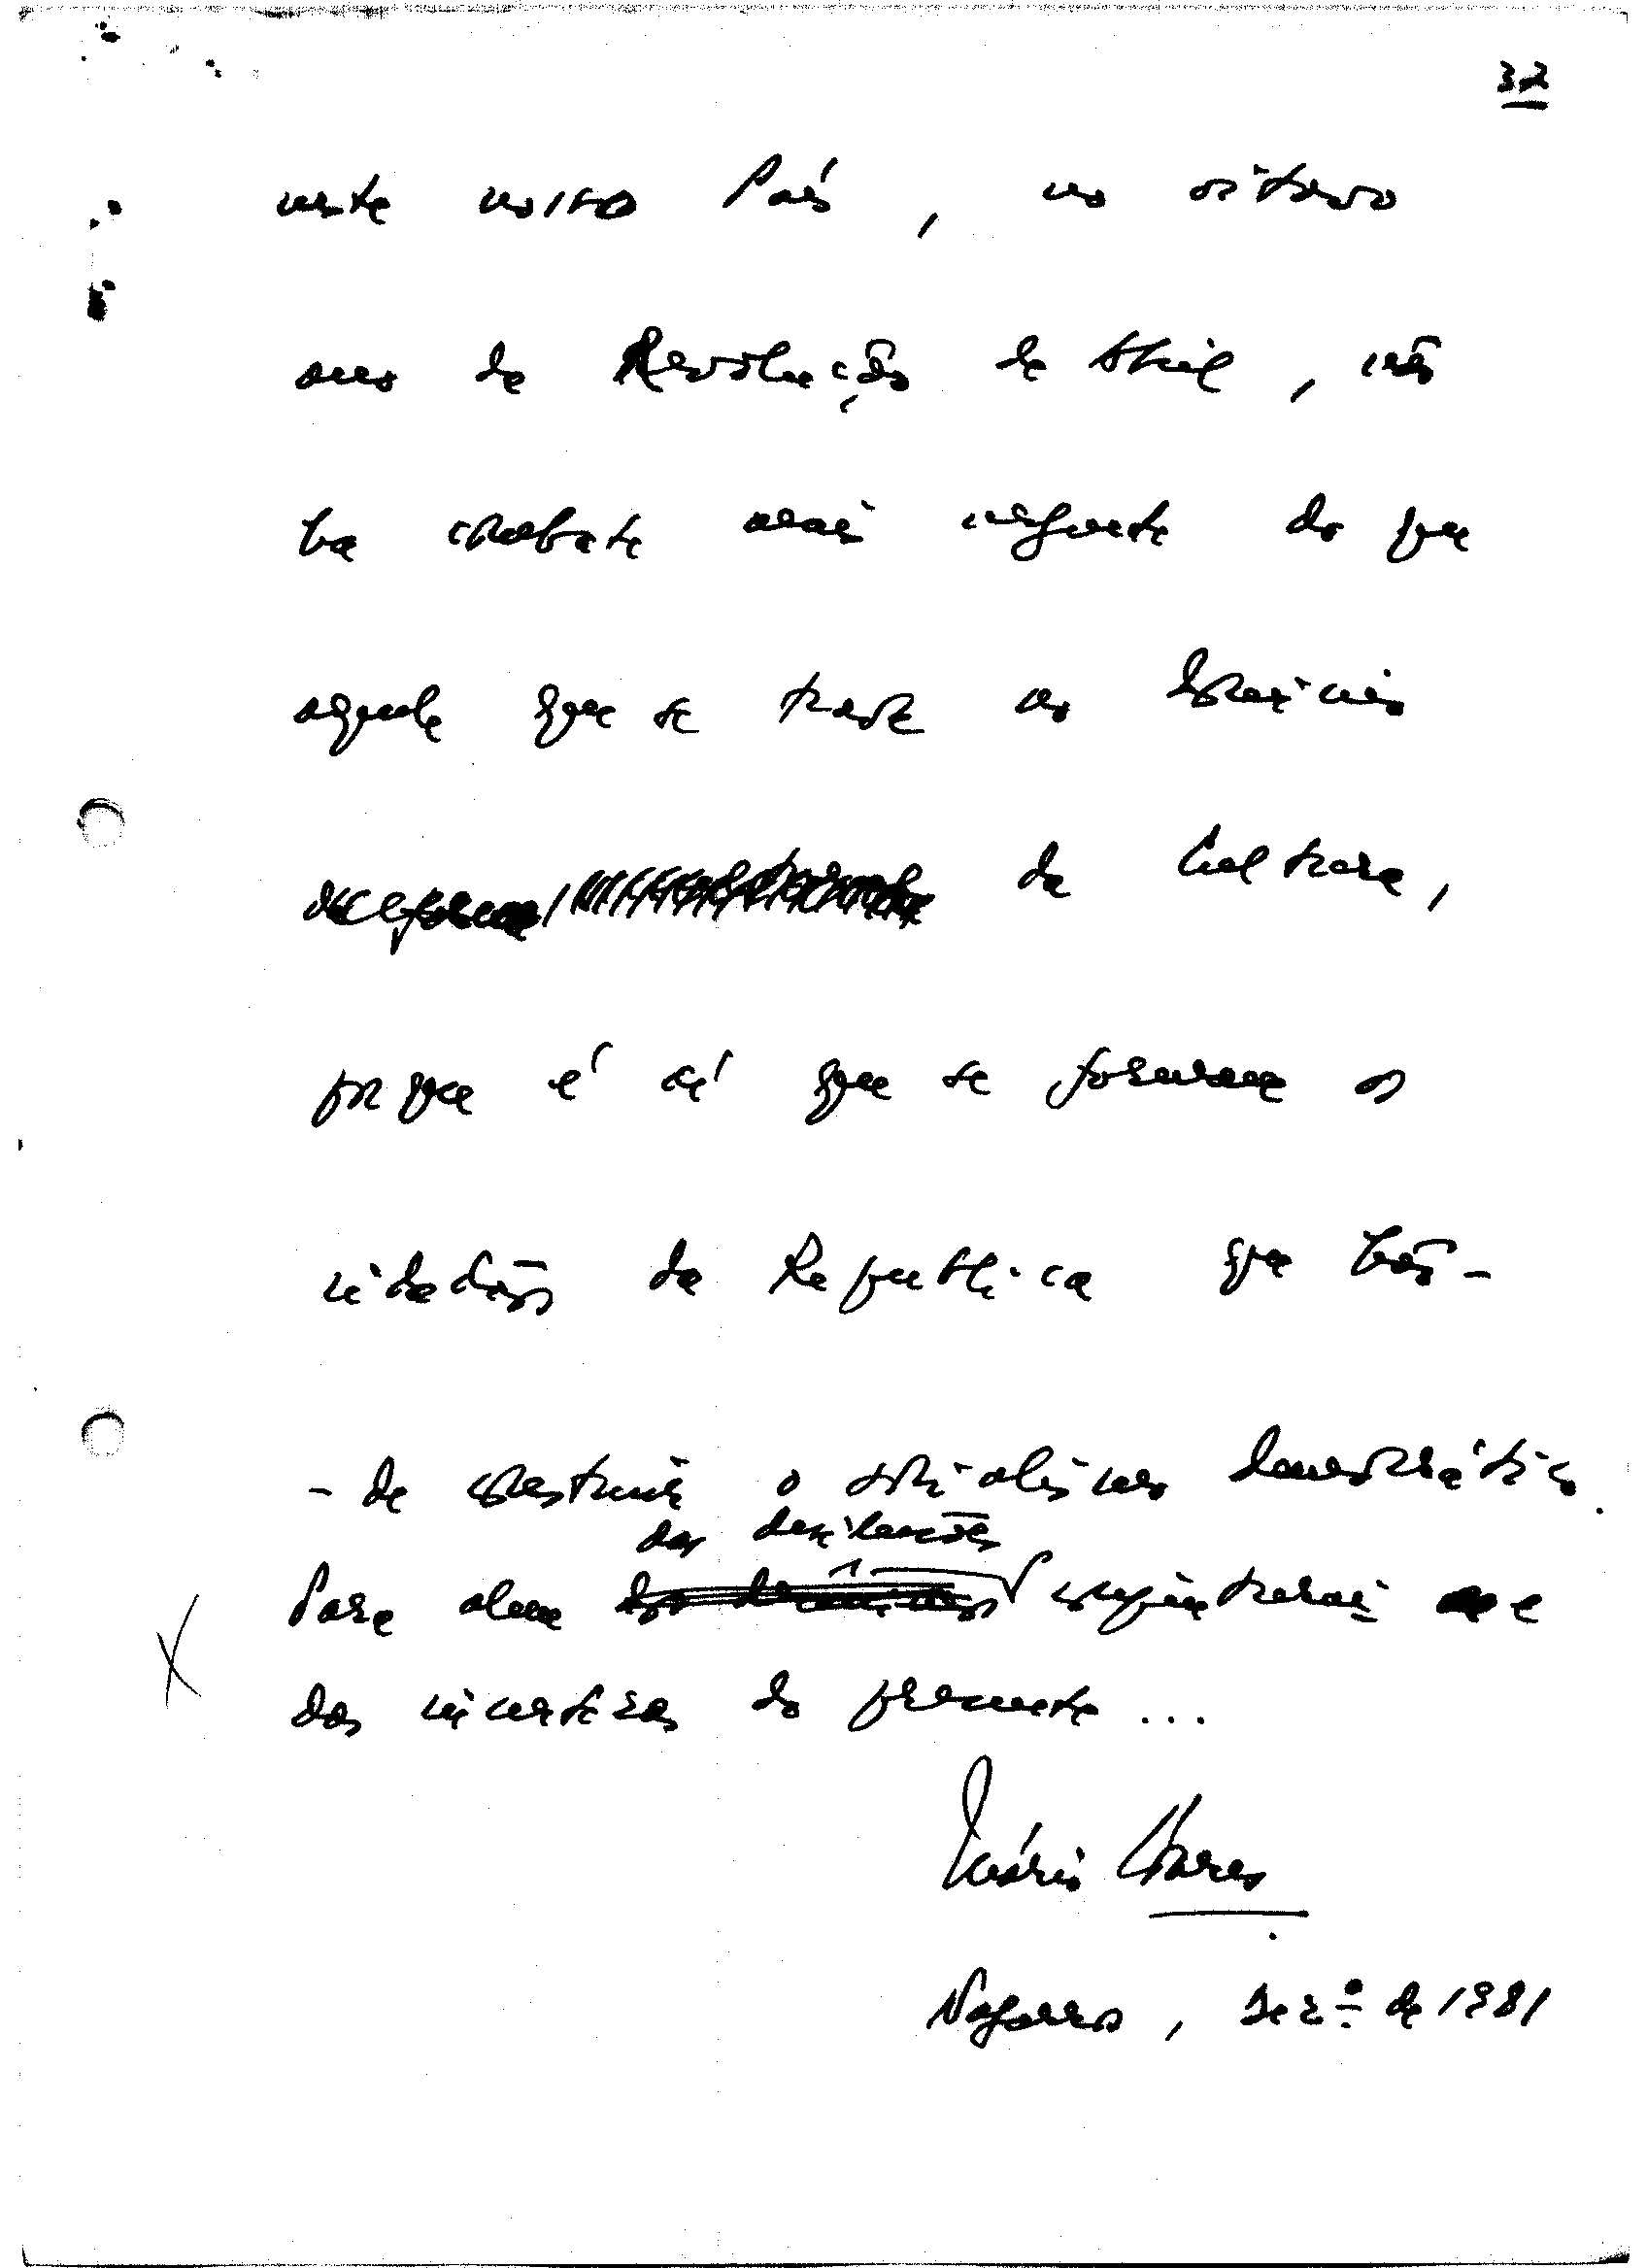 32
neste nosso País, no oitavo
ano da Revolução de Abril, não
há combate mais urgente do que
aquele que se trava no domínio
da Cultura,
porque é aí que se formam os
cidadãos da República que hão-
-de construir o socialismo democrático.
das desilusões
Para além conjunturais e
das incertezas do presente...
Mário Soares
Nafarros, Dezº de 1981